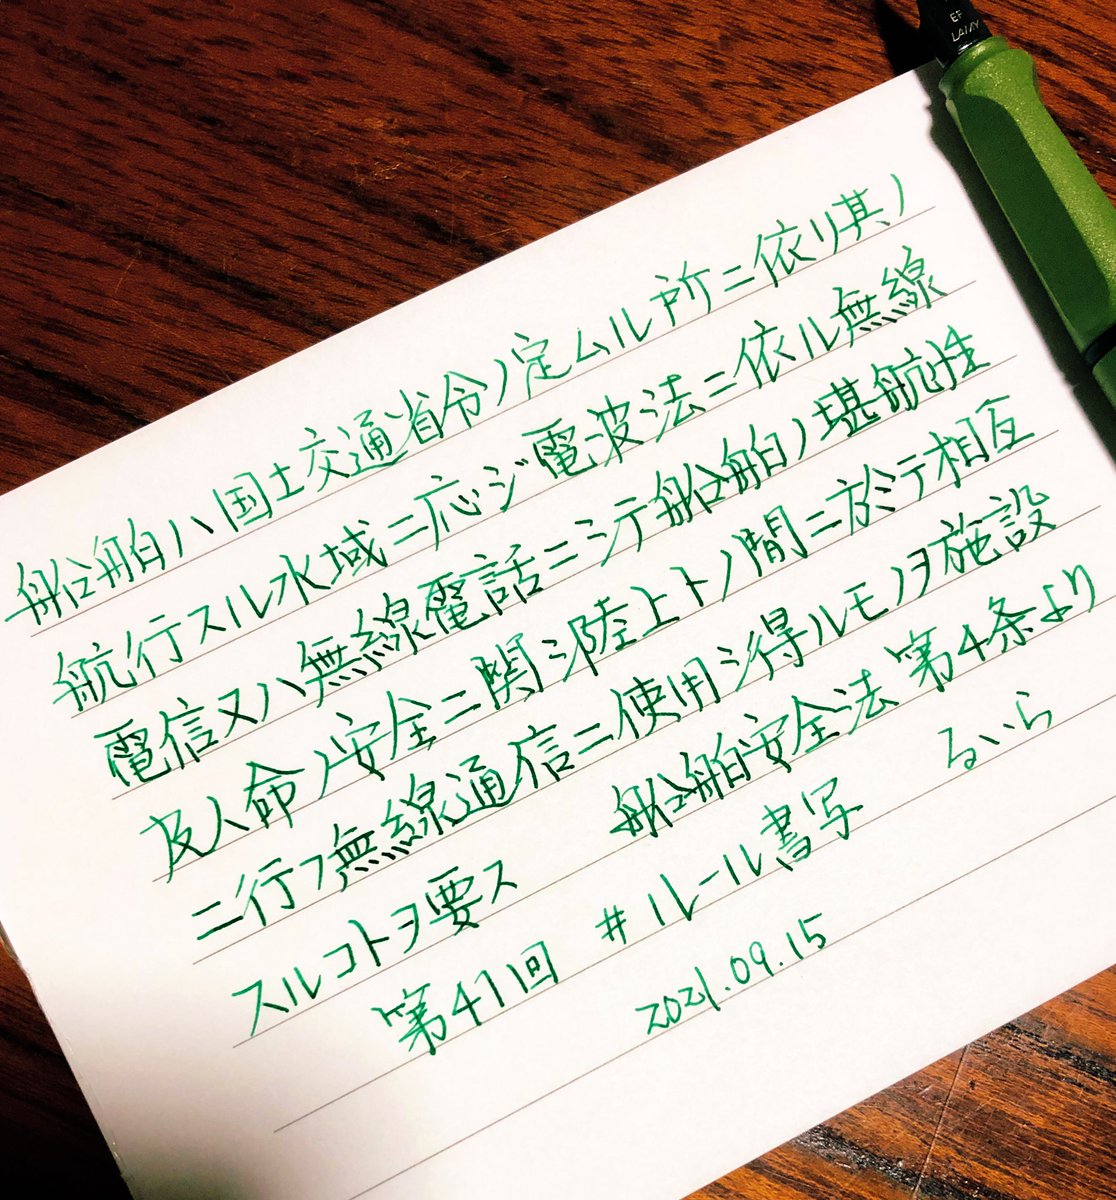 船舶ハ国土交通省令ノ定ムル所ニ依リ其ノ
航行スル水域ニ応ジ電波法ニ依ル無線
電信又ハ無線電話ニシテ船舶ノ堪航性
及人命ノ安全ニ関シ陸上トノ間ニ於テ相互
ニ行フ無線通信ニ使用シ得ルモノヲ施設
スルコトヲ要ス 船舶安全法 第4条より
第41回 #ルール書写 るいら
2021.09.15
EF
LAMY